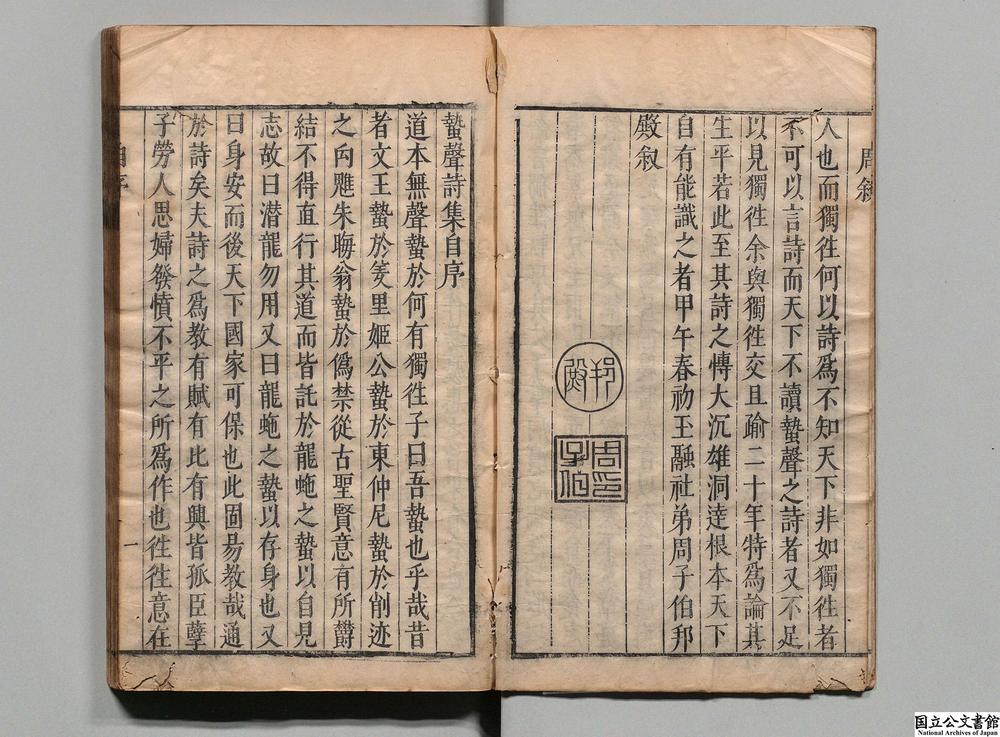 周叙
人也而獨徃何以詩爲不知天下非如獨徃者
不可以言詩而天下不讀蟄聲之詩者又不足
以見獨徃余與獨徃交且踰二十年特爲論其
生平若此至其詩之慱大沉雄洞達根本天下
自有能識之者甲午春初玉融社弟周子伯邦
殿叙
周子伯印
蟄聲詩集自序
道本無聲蟄於何有獨徃子曰吾蟄也乎哉昔
者文王蟄於羑里姬公蟄於東仲尼蟄於削迹
之向魋朱晦翁蟄於僞禁從古聖賢意有所欝
結不得直行其道而皆託於龍虵之蟄以自見
志故曰潜龍勿用又曰龍虵之蟄以存身也又
曰身安而後天下國家可保也此固昜教哉通
於詩矣夫詩之爲教有賦有比有興皆孤臣孽
子勞人思婦發憤不平之所爲作也徃徃意在
自序
一
国立公文書館
National Archives of Japan